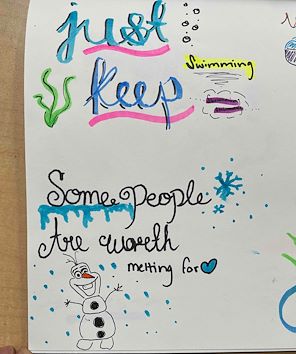 just
keep
Swimming
Some people
Are worth
melting for